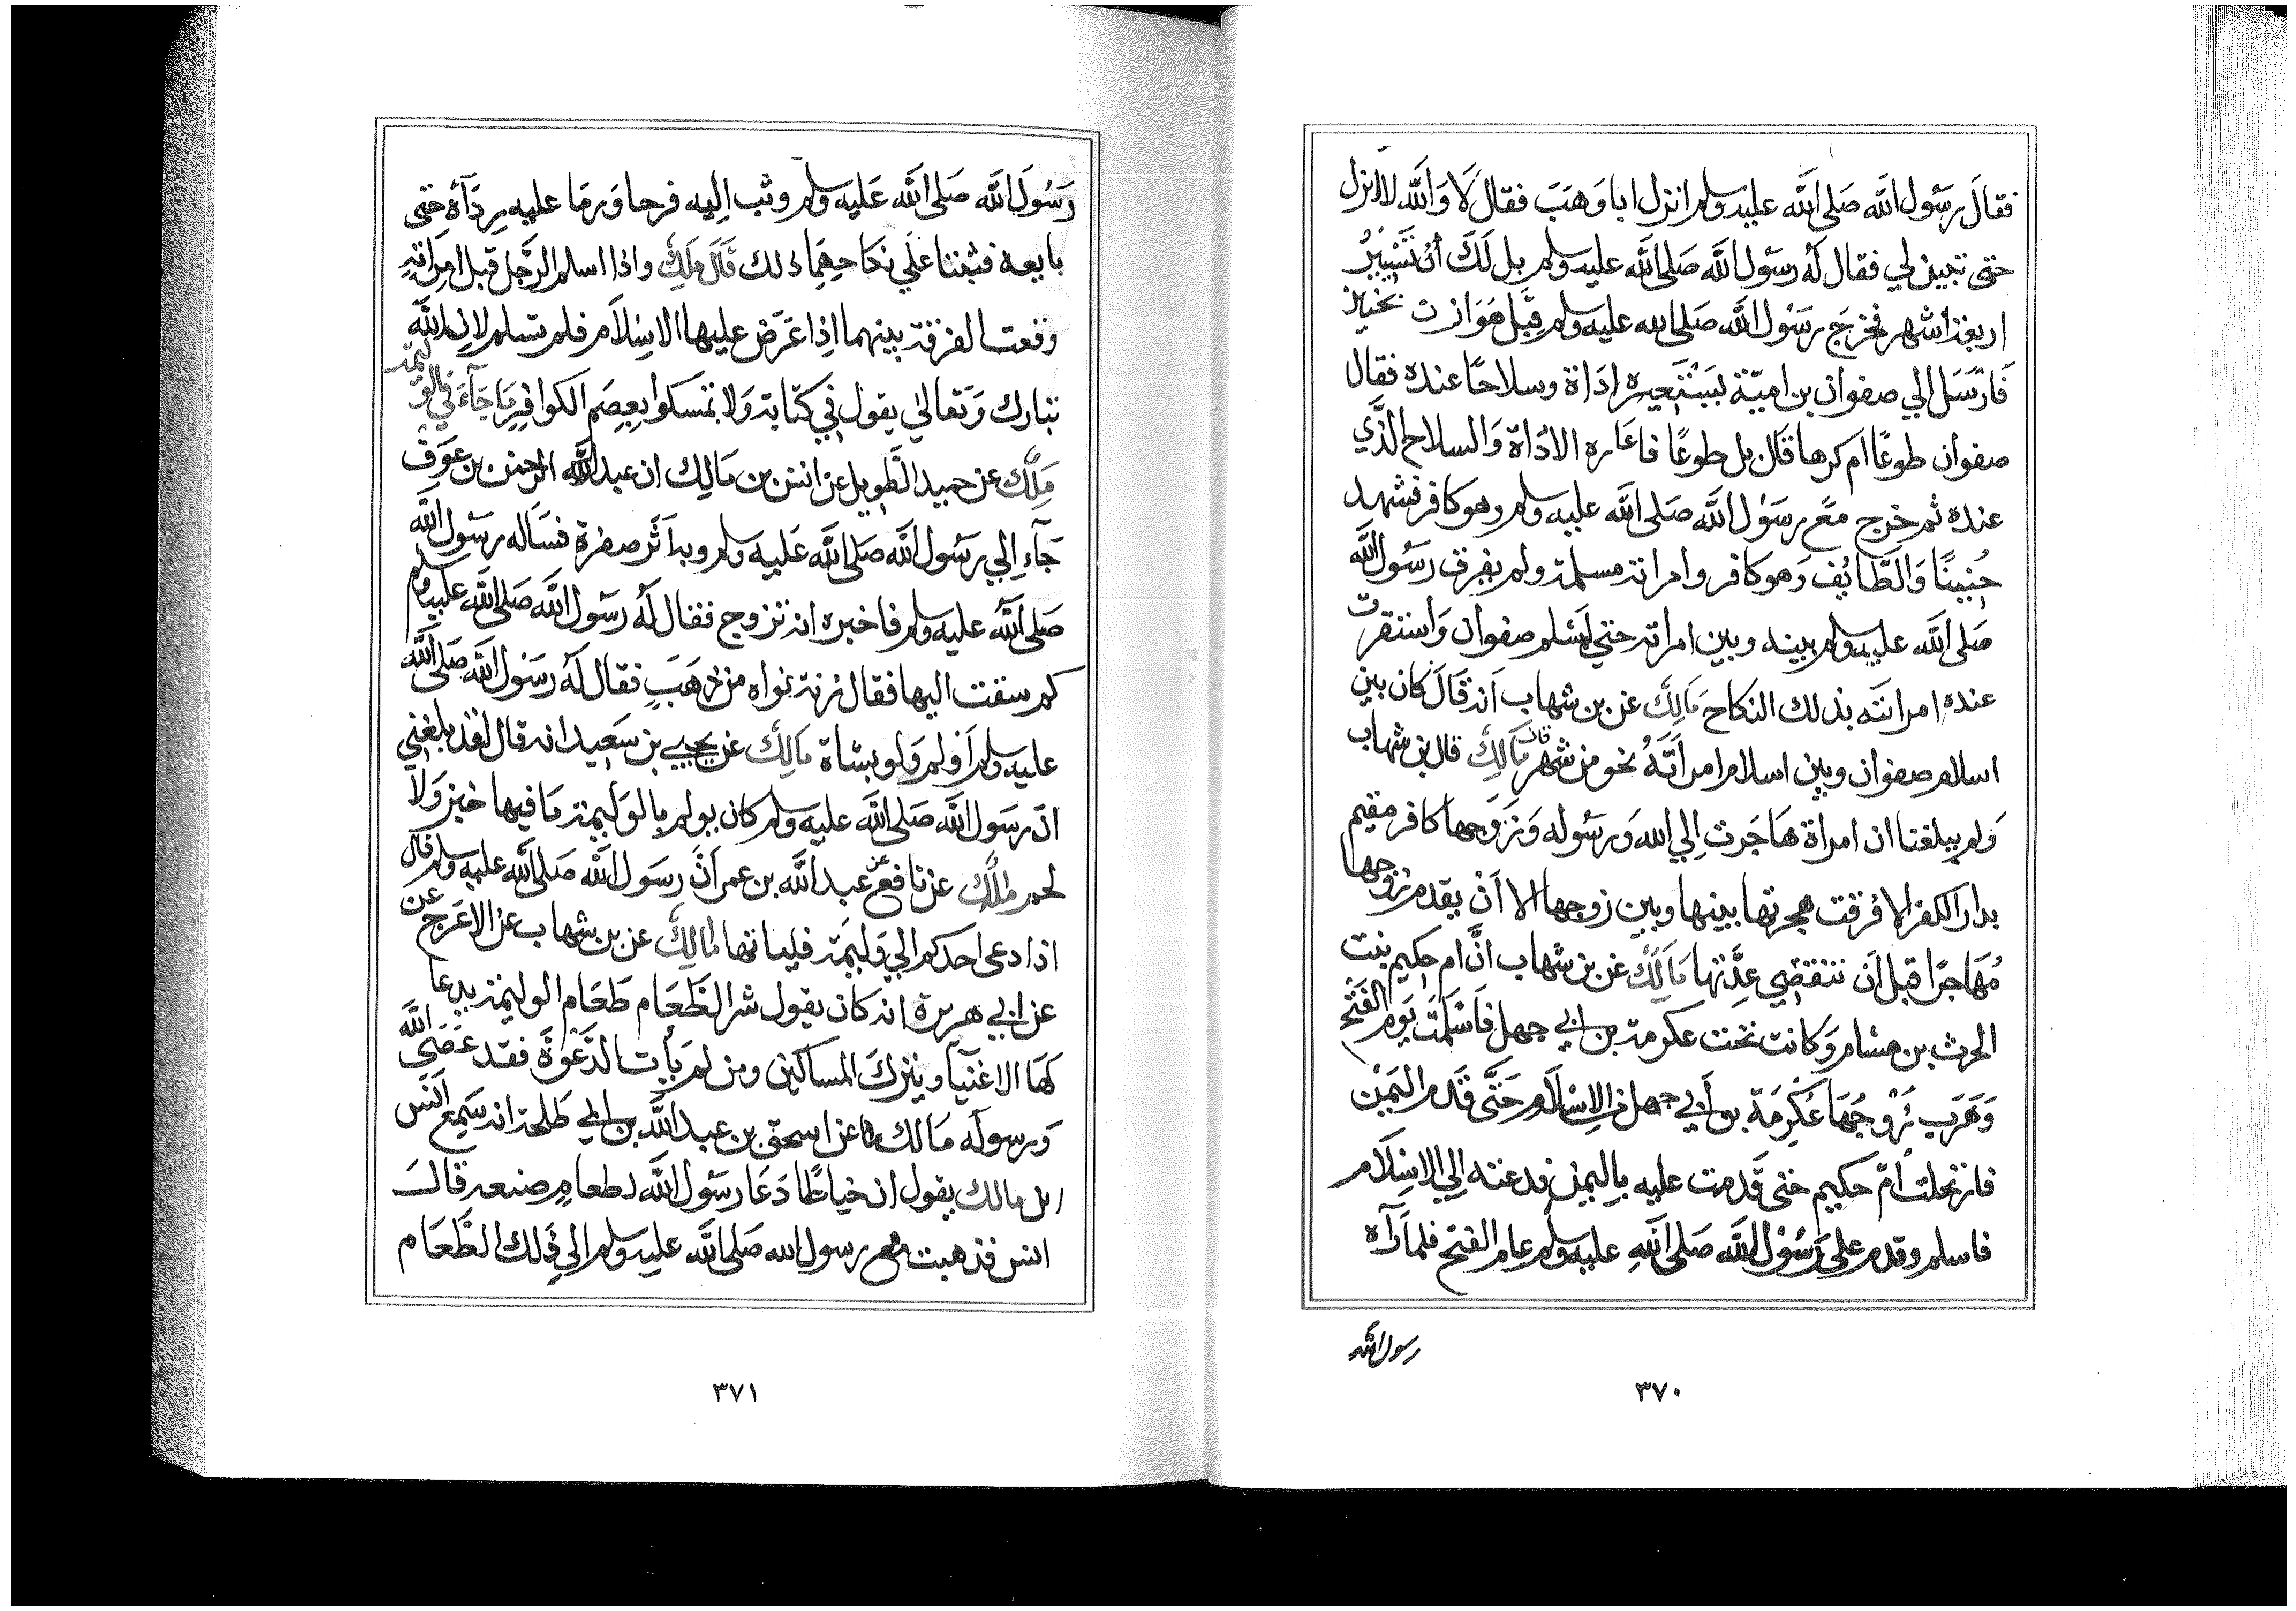 فقال رسول الله صلى الله عليه وسلم انزل ابا وهب فقال لا والله لا انزل
حتى تبين لي فقال له رسول الله صلى الله عليه وسلم بل لك أن تسير
اربعة اشهر فخرج رسول الله صلى الله عليه وسلم قبل هوازن بحنين
فارسل الي صفوان بن امية يستعيره اداة وسلاحا عنده فقال
صفوان طوعًا ام كرها قال بل طوعًا فاعاره الاداة والسلاح الذي
عنده ثم خرج مع رسول الله صلى الله عليه وسلم وهو كافر فشهد
حنينًا والطائف وهو كافر وامراته مسلمة ولم يفرق رسول الله
صلى الله عليه وسلم بينه وبين امراته حتي اسلم صفوان واستقرت
عنده امراته بذلك النكاح مالك عن بن شهاب انه قال كان بين
اسلام صفوان وبين اسلام امراته نحو من شهر قال مالك قال بن شهاب
ولم يبلغنا ان امراة هاجرت الي الله ورسوله وزوجها كافر مقيم
بدار الكفر الا فرقت هجرتها بينها وبين زوجها الا ان يقدم زوجها
مهاجرا قبل ان تنقضي عدتها مالك عن بن شهاب ان ام حكيم بنت
الحرث بن هشام وكانت تحت عكرمة بن ابي جهل فاسلمت يوم الفتح
وهرب زوجها عكرمة بن ابي جهل من الاسلام حتى قدم اليمن
فارتحلت أم حكيم حتى قدمت عليه باليمن فدعته الي الاسلام
فاسلم وقدم على رسول الله صلى الله عليه وسلم عام الفتح فلما رآه
رسول الله
٣٧٠
رسول الله صلى الله عليه وسلم وثب اليه فرحا ورما عليه رداه حتى
بايعه فثبتنا علي نكاحهما ذلك قال ملك واذا اسلم الرجل قبل امراته
وقعت الفرقة بينهما اذا عرض عليها الاسلام فلم تسلم لان الله
تبارك وتعالى يقول في كتابه ولا تمسكوا بعصم الكوافر ما جآء في الوليمة
ملك عن حميد الطويل عن انس بن مالك ان عبد الرحمن بن عوف
جآء الي رسول الله صلى الله عليه وسلم وبه اثر صفرة فساله رسول الله
صلى الله عليه وسلم فاخبره انه تزوج فقال له رسول الله صلى الله عليه وسلم
كم سقت اليها فقال زنة نواه من ذهب فقال له رسول الله صلى الله
عليه وسلم أولم ولو بشاة مالك عن يحيي بن سعيد انه قال لقد بلغني
ان رسول الله صلى الله عليه وسلم كان يولم بالوليمة ما فيها خبز ولا
لحم ملك عن نافع عن عبد الله بن عمر ان رسول الله صلى الله عليه وسلم قال
اذا دعى احدكم الي وليمة فلياتها مالك عن بن شهاب عن الاعرج عن
عن ابي هريرة انه كان يقول شر الطعام طعام الوليمة يدعا
لها الاغنيآ ويترك المساكين ومن لم يأت الدعوة فقد عصى الله
ورسوله مالك عن اسحق بن عبد الله بن ابي طلحة انه سمع انس
ابن مالك يقول ان خياطا دعا رسول الله لطعام صنعه قال
انس فذهبت مع رسول الله صلى الله عليه وسلم الي ذلك الطعام
٣٧١